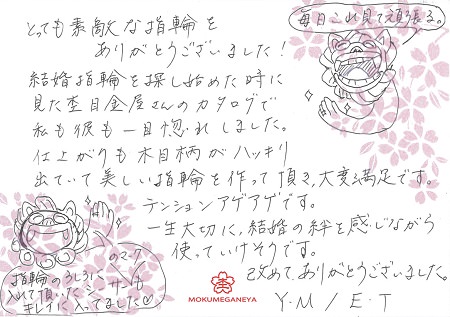 とっても素敵な指輪を
ありがとうございました！
結婚指輪を探し始めた時に
見た杢目金屋さんのカタログで
私も彼も一目惚れしました。
仕上がりも木目柄がハッキリ
出ていて美しい指輪を作って頂き、大変満足です。
テンションアゲアゲです。
一生大切に、結婚の絆を感じながら
使っていけそうです。
改めてありがとうございました。
Y・M / E・T
毎日これ見て頑張る。
のマーク
指輪のうしろに
入れて頂いたシーサーも
キレイに入ってました♡
MOKUMEGANEYA